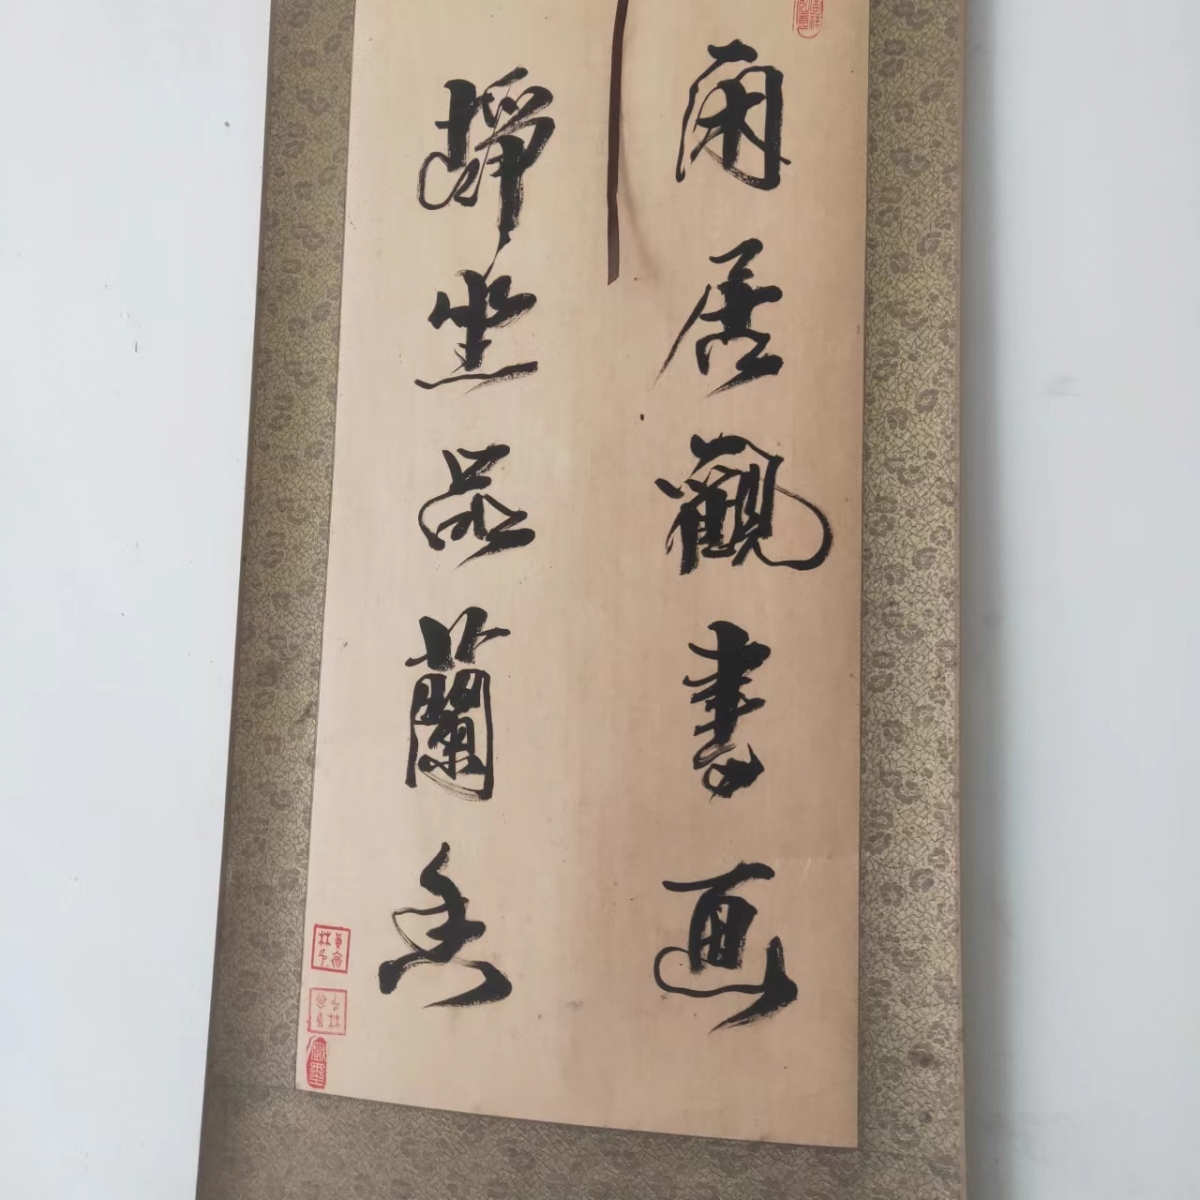 閑居觀書画
靜坐品蘭香